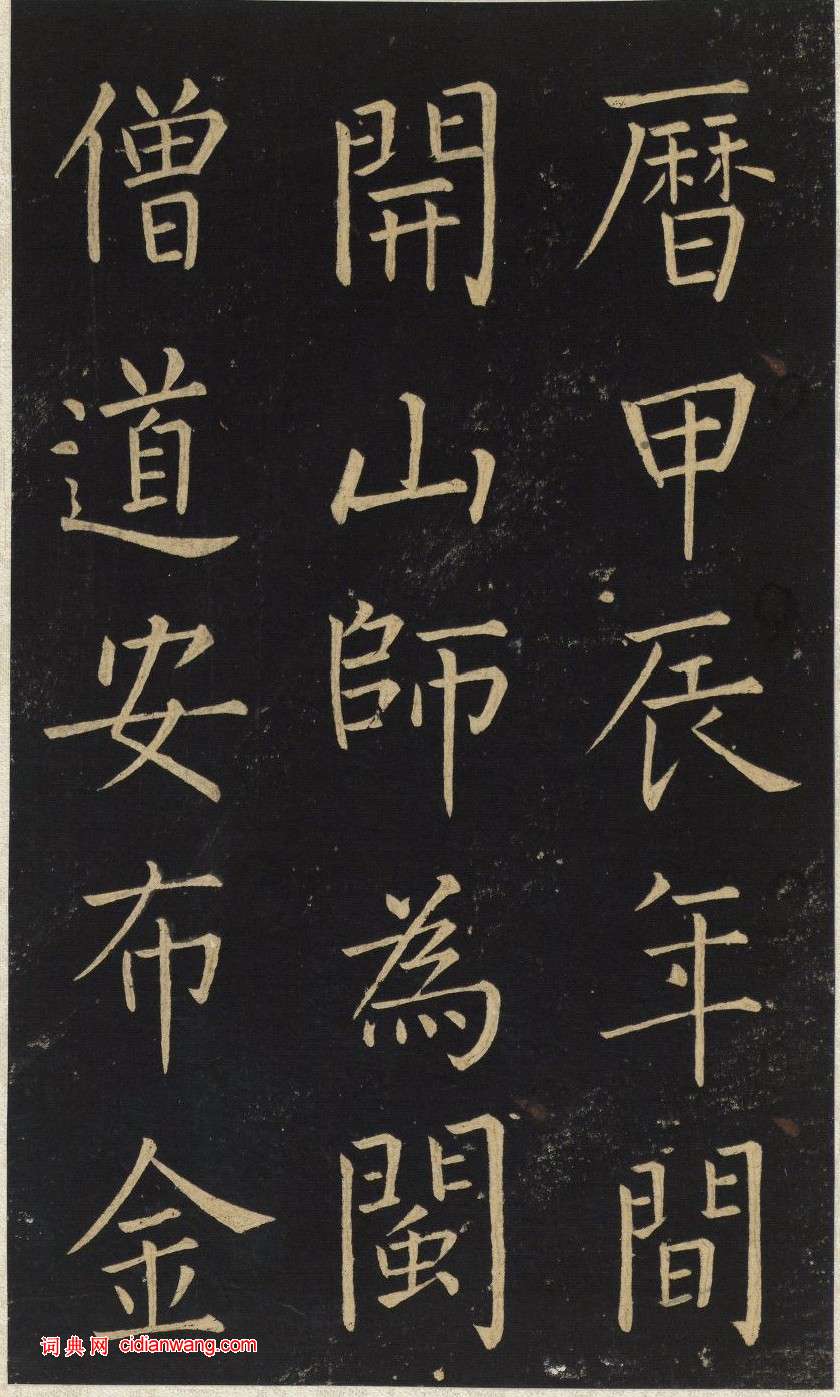 曆甲辰年間
開山師為閩
僧道安布金
词典网 cidianwang.com